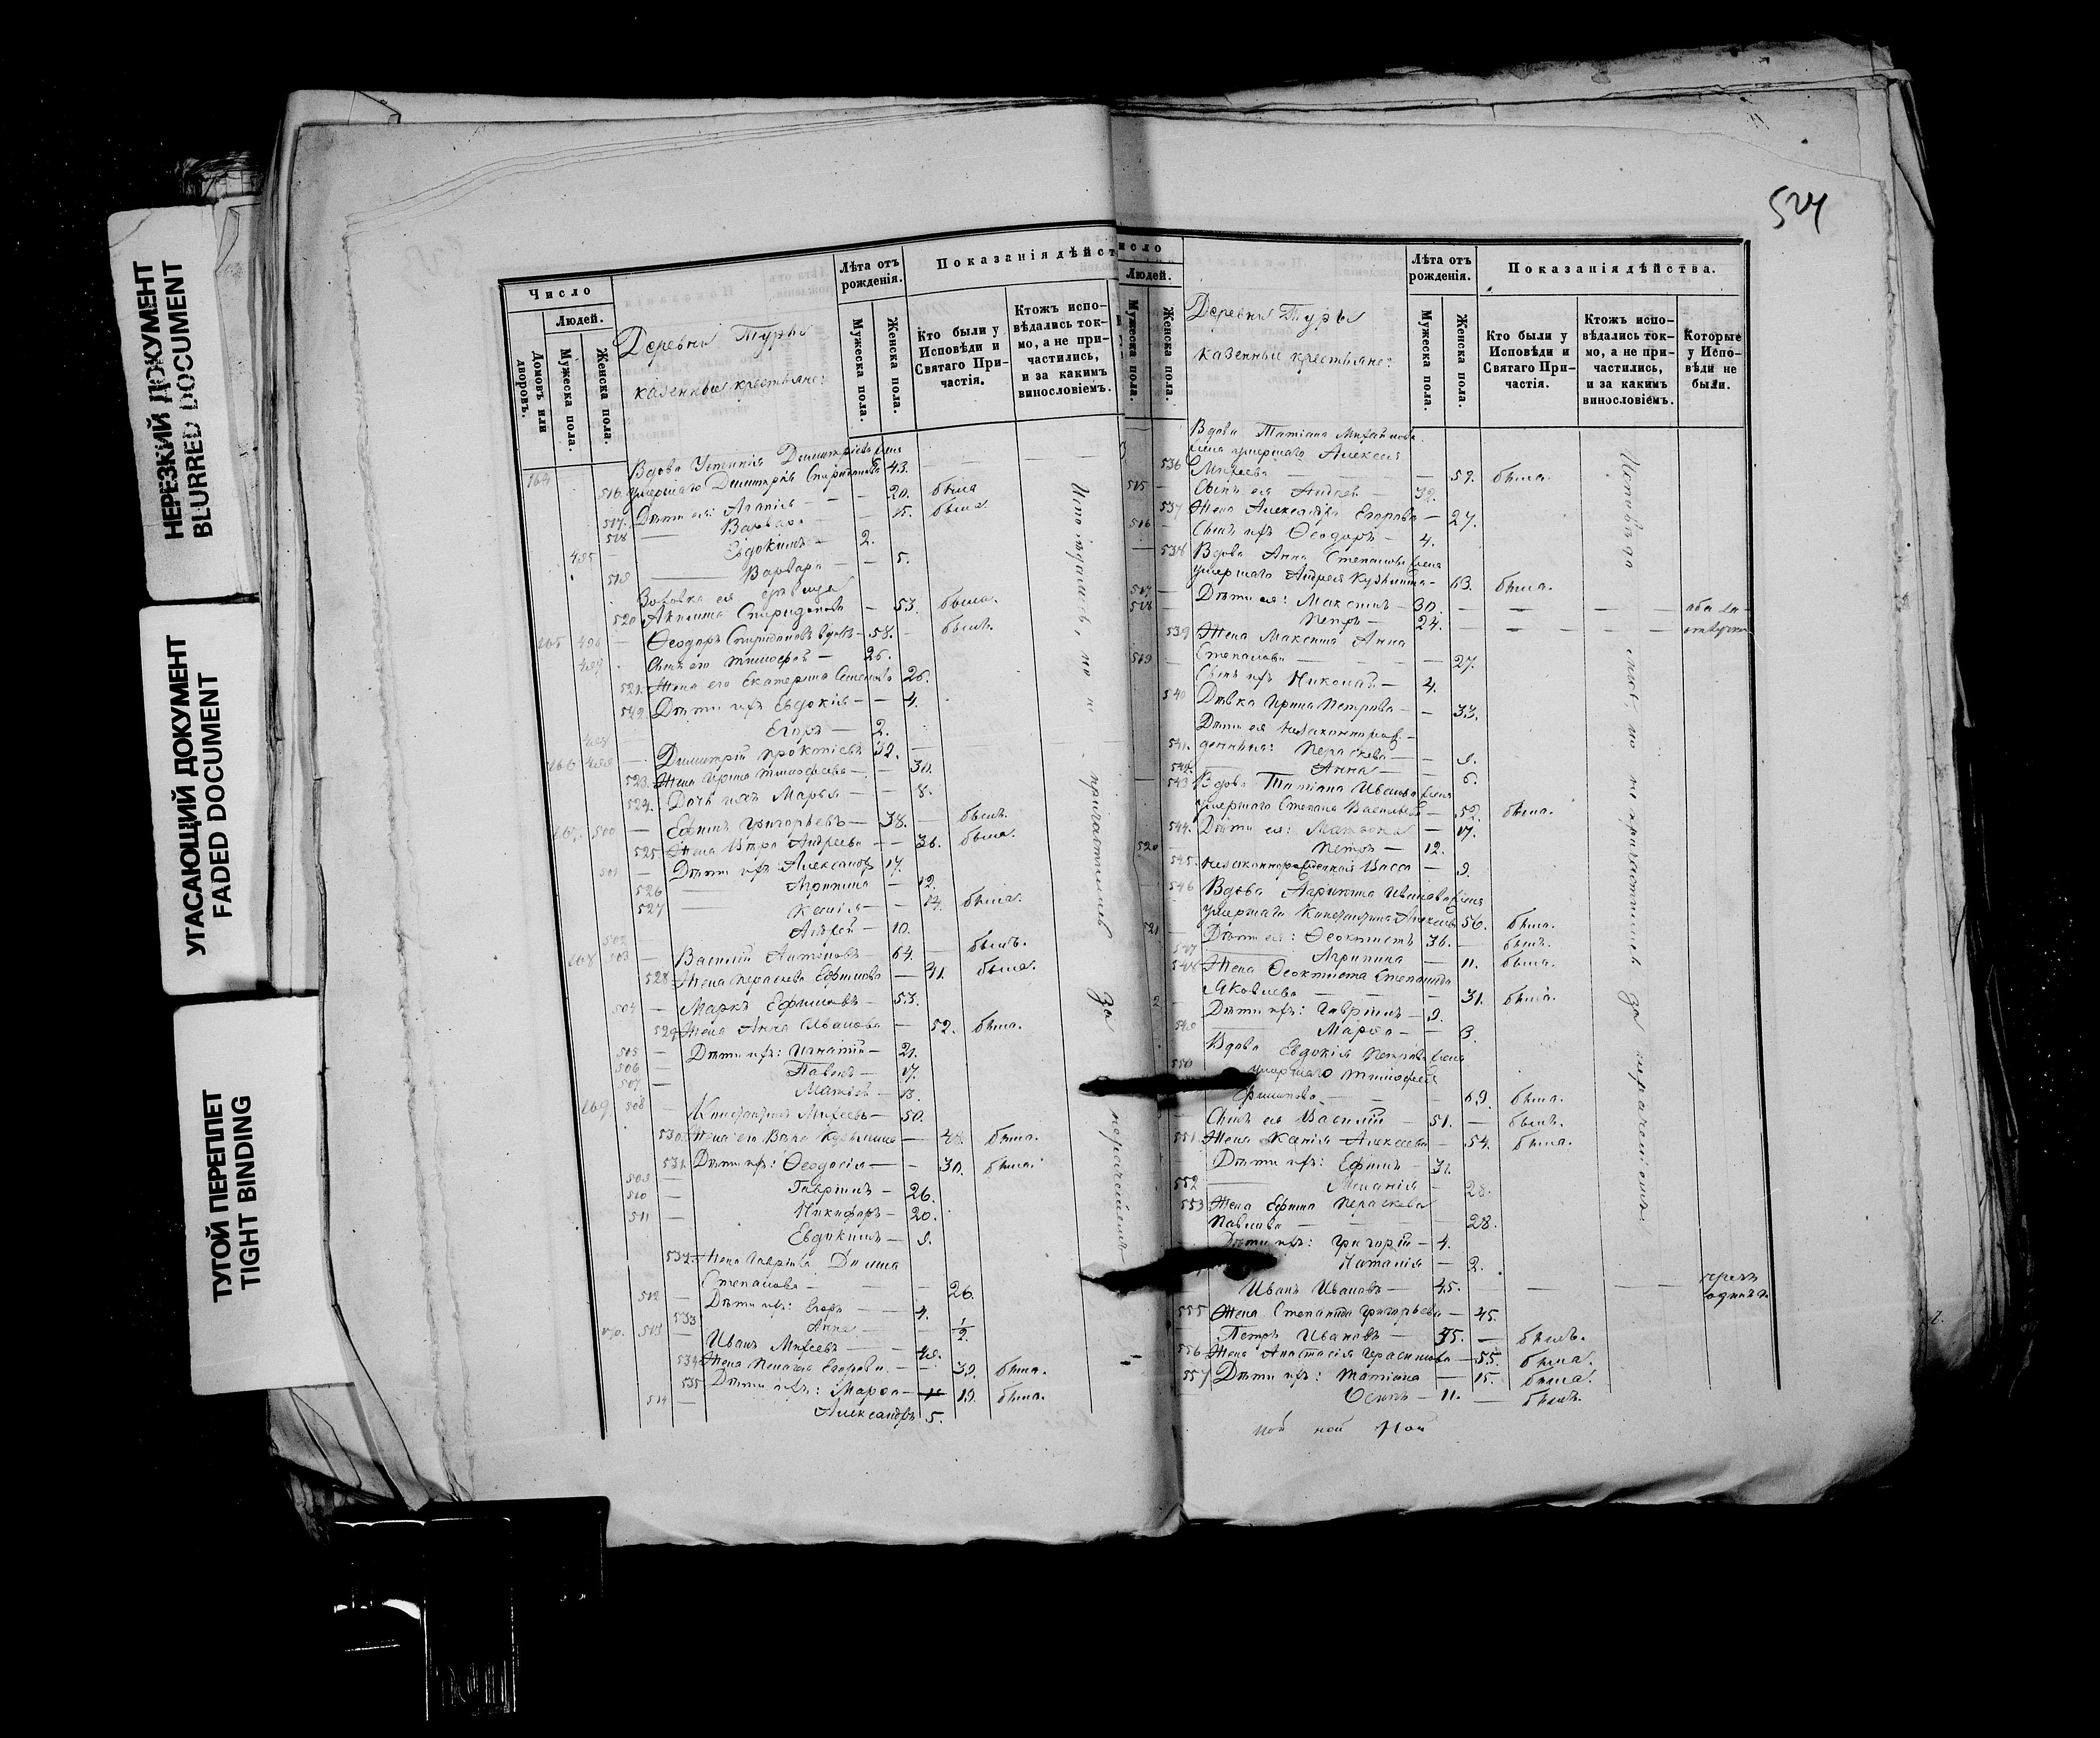 НЕРЕЗКИЙ ДОКУМЕНТ
BLURRED DOCUMENT
УГАСАЮЩИЙ ДОКУМЕНТ
FADED DOCUMENT
ТУГОЙ ПЕРЕПЛЕТ
TIGHT BINDING
524
Число
Людей.
Домовъ или дворовъ.
Мужеска пола.
Женска пола.
Деревни Туры
казенные крестьяне:
Лѣта отъ рожденія.
Мужеска пола.
Женска пола.
Показанія дѣйст
Кто были у Исповѣди и Святаго Причастія.
Ктожъ исповѣдались токмо, а не причастились, и за какимъ винословіемъ.
164 Вдова Устинія Димитріева жена
516 умершаго Димитрія Спиридонова 43.
517. Дѣти ея: Агапія — 20. была
518 Варвара — 15. была.
495 Евдокимъ — 2.
519 Варвара — 5.
Золовка ея дѣвица
520 Акилина Спиридонова — 53. была.
165 496 Ѳеодоръ Спиридоновъ вдовъ — 58. былъ.
497 Сынъ его Тимоѳей — 26.
521. Жена его Екатерина Семенова 26.
522. Дѣти ихъ Евдокія — 4.
498 Егоръ — 2.
166 499 Димитрій Прокопіевъ 32.
523. Жена Ирина Тимоѳеева — 30.
524. Дочь ихъ Марья — 8.
167. 500 — Ефимъ Григорьевъ — 38. — былъ.
525 Жена Андреева — 36. была.
501 — Дѣти ихъ Александръ 17.
526 Агрипина — 12.
527 Ксенія — 14. была.
502 Андрей — 10.
168 503 — Василій — 64. — былъ.
528 Жена Параскева Ефимова — 41. была.
504 — Маркъ Ефимовъ — 53.
529 Жена Анна Иванова — 52. была.
505 — Дѣти ихъ: Игнатій — 21.
506 — Павелъ — 17.
507 — Матвей — 13.
169 508 — Константинъ Михеевъ — 50.
530. Жена его Козьмина — была.
531. Дѣти ихъ: Ѳеодосія — 30. была.
509 — Гавріилъ — 26.
510 — Никифоръ — 20.
511 — Евдокимъ — 9.
532. Жена Гавріила Домна
Степанова — 26.
512 — Дѣти ихъ: Егоръ — 4.
533 Анна — 1/2.
170. 513 — Иванъ Михеевъ —
534 Жена Пелагея Егорова — 39. была.
535 Дѣти ихъ: Марѳа — 19. была.
514 — Александръ 5.
Исповѣдались, но не причастились За нерачениемъ
исло
Людей.
Мужеска пола.
Женска пола.
Деревни Туры
казенные крестьяне:
Лѣта отъ рожденія.
Мужеска пола.
Женска пола.
Показанія дѣйства.
Кто были у Исповѣди и Святаго Причастія.
Ктожъ исповѣдались токмо, а не причастились, и за какимъ винословіемъ.
Которые у Исповѣди не были.
Вдова Татіана Михайлова
жена умершаго Алексея
536 Михеева — 59. была.
515 — Сынъ ея Андрей — 32.
537 Жена Александра Егорова — 27.
516 — Сынъ ихъ Ѳеодоръ — 4.
538 Вдова Анна Степанова жена
умершаго Андрея Кузьмина — 63. была.
517 — Дѣти ея: Максимъ — 30. оба за
518 — Петръ — 24.
539 Жена Максима Анна
Степанова — 27.
519 Сынъ ихъ Николай — 4.
540 Дѣвка Ирина Петрова — 33.
Дѣти ея незаконнорож-
541. денныя: Параскева — 9.
542. Анна — 6.
543 Вдова Татіана Иванова жена
умершаго Степана Васильева — 52. была.
544. Дѣти ея: Матрона — 17.
520 Петръ — 12.
545. Незаконнорожденная Васса — 9.
546 Вдова Агрипина Иванова жена
умершаго Константина Алексеев 56. была.
521 — Дѣти ея: Ѳеоктистъ 36. — былъ.
547 Агрипина — 11. была.
548 Жена Ѳеоктиста Степанида
Яковлева — 31. была.
Дѣти ихъ: Гавріилъ — 9.
549 Марѳа — 3.
Вдова Евдокія Петрова жена
550 умершаго Тимоѳея
Филипова — 69. была.
Сынъ ея Василій — 51. — былъ.
551. Жена Ксенія Алексеева — 54. была.
Дѣти ихъ: Ефимъ — 31.
552 Меланія — 28.
553 Жена Ефима Параскева
Павлова — 28.
Дѣти ихъ: Григорій — 4.
Наталія — 2.
Иванъ Ивановъ — 45.
555 Жена Степанида Григорьева — 45.
Петръ Ивановъ — 55. — былъ.
556 Жена Анастасія Герасимова — 55. была.
557 Дѣти ихъ: Татіана — 15. была.
Осипъ — 11. — былъ.
Исповѣдались, но не причастились За нерачениемъ